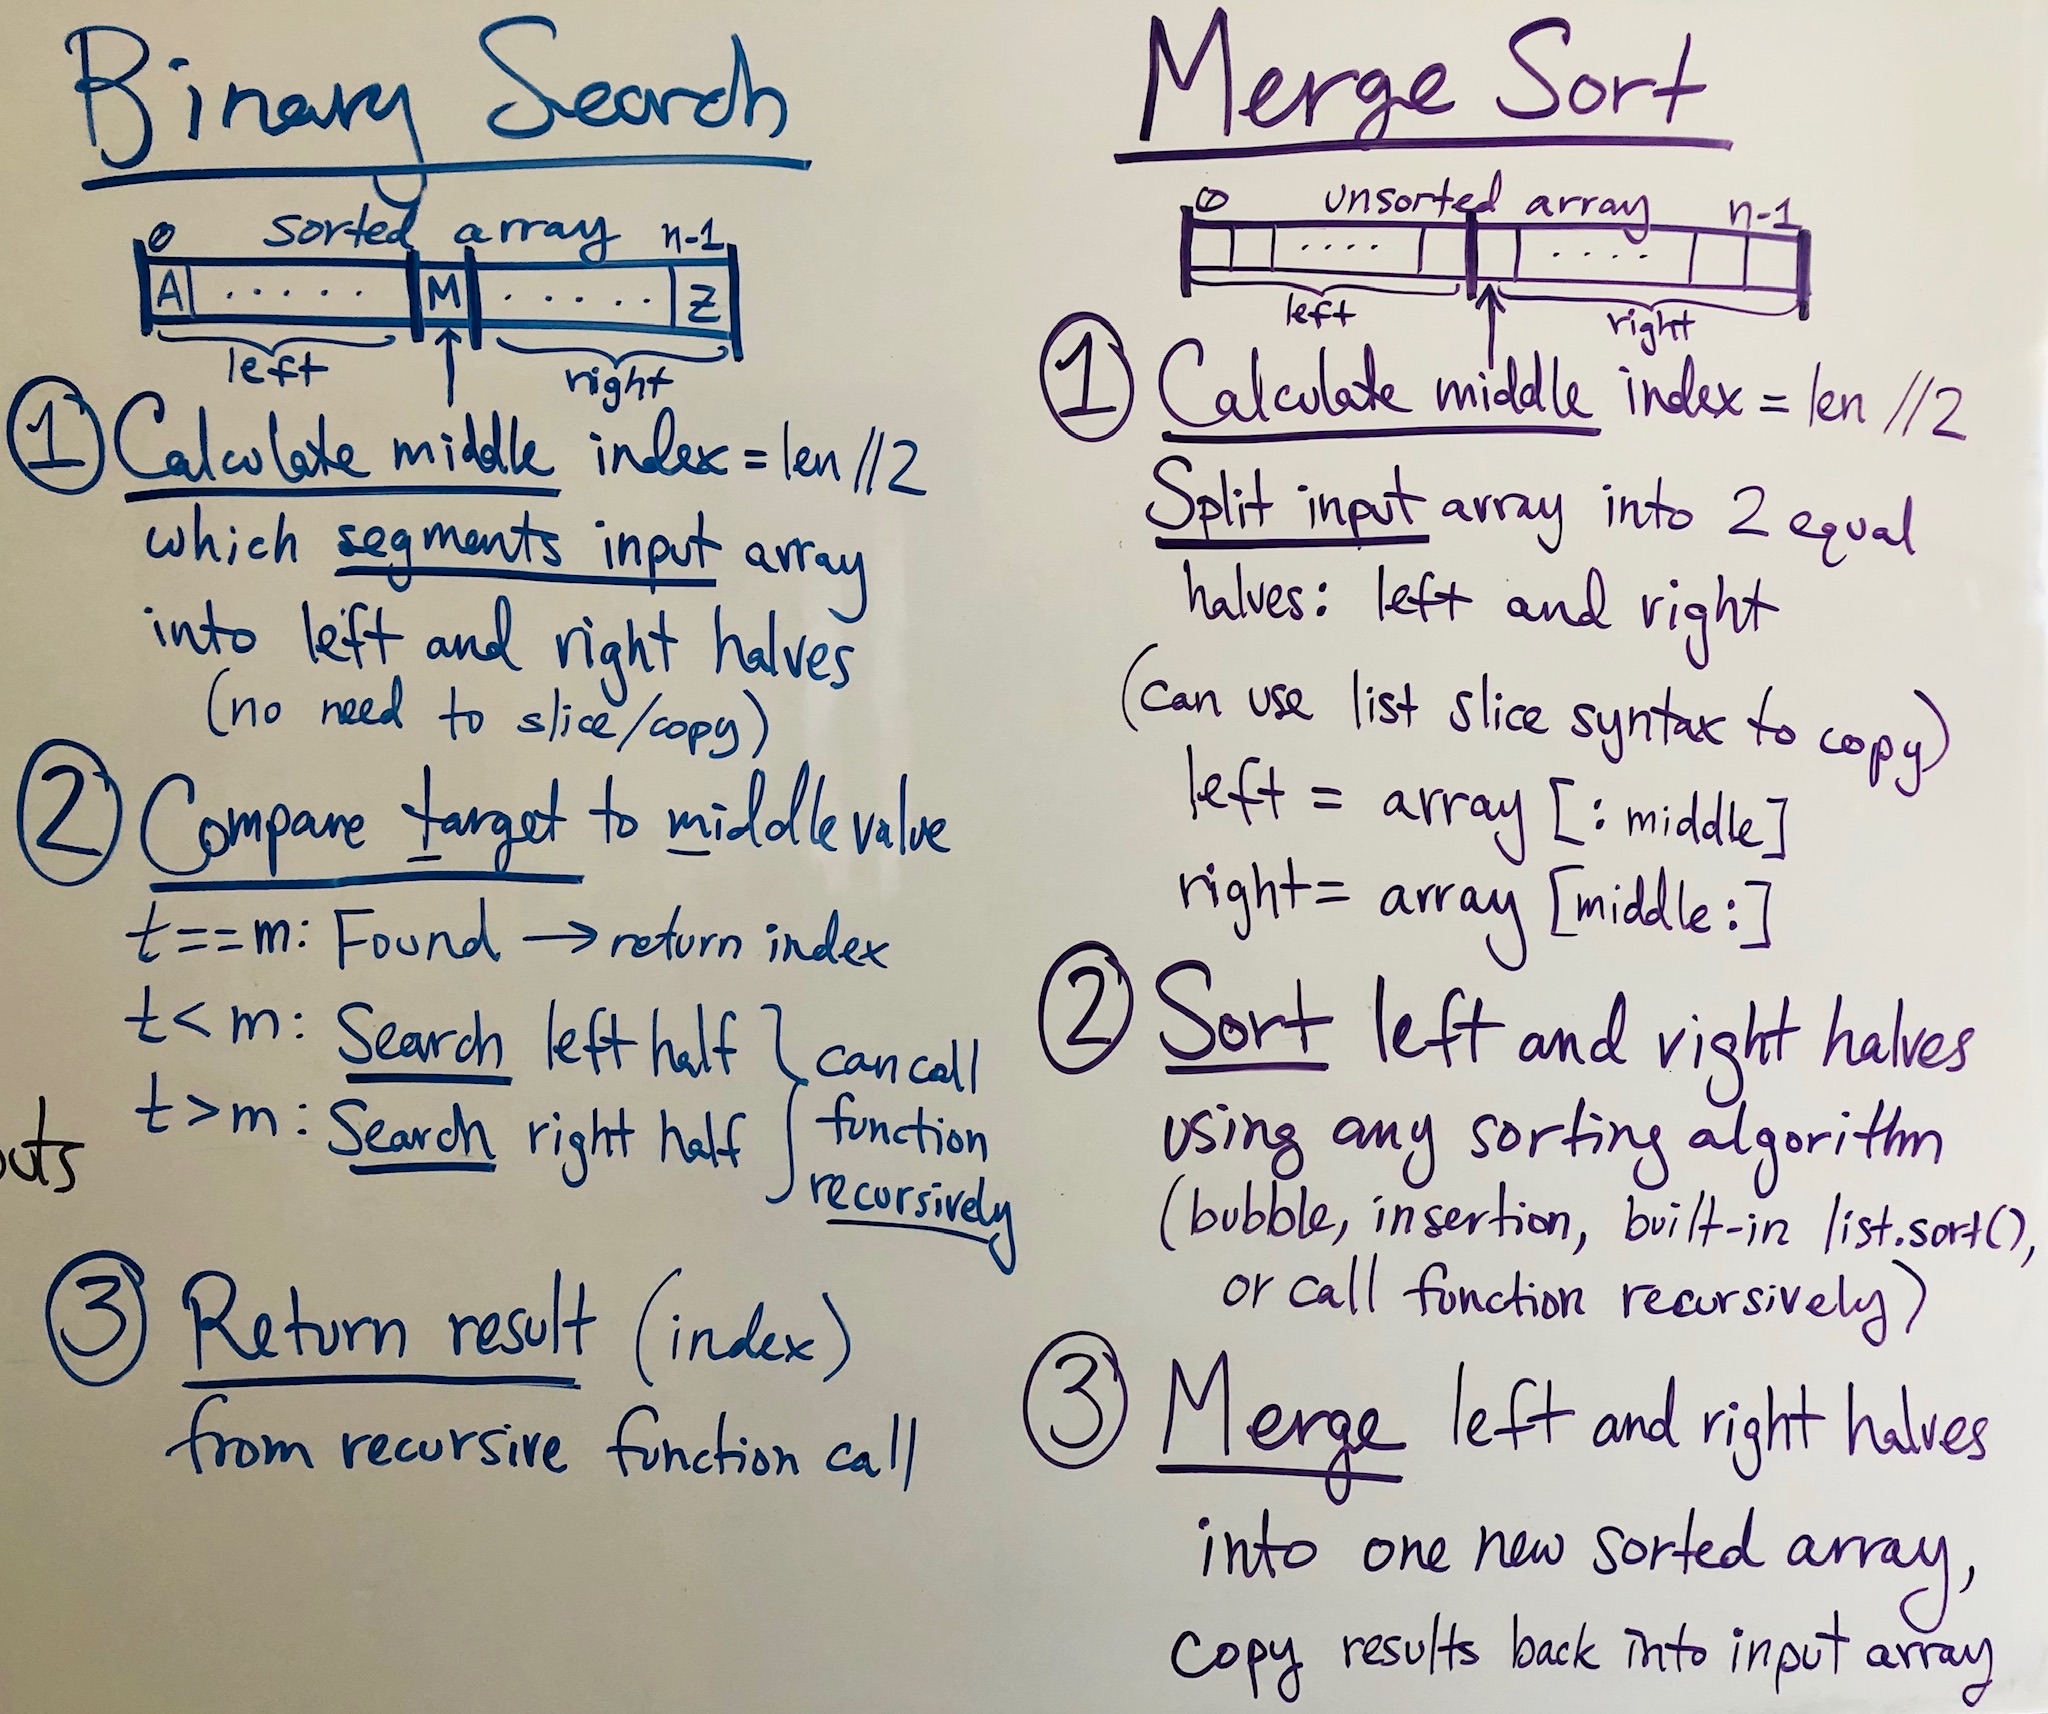 Binary Search
0 sorted array n-1
A ..... M ..... Z
left right
① Calculate middle index = len//2
which segments input array
into left and right halves
(no need to slice/copy)
② Compare target to middle value
t==m: Found → return index
t<m: Search left half
t>m: Search right half
can call
function
recursively
③ Return result (index)
from recursive function call
Merge Sort
0 unsorted array n-1
.... ....
left right
① Calculate middle index = len//2
Split input array into 2 equal
halves: left and right
(can use list slice syntax to copy)
left = array [:middle]
right = array [middle:]
② Sort left and right halves
using any sorting algorithm
(bubble, insertion, built-in list.sort(),
or call function recursively)
③ Merge left and right halves
into one new sorted array,
copy results back into input array